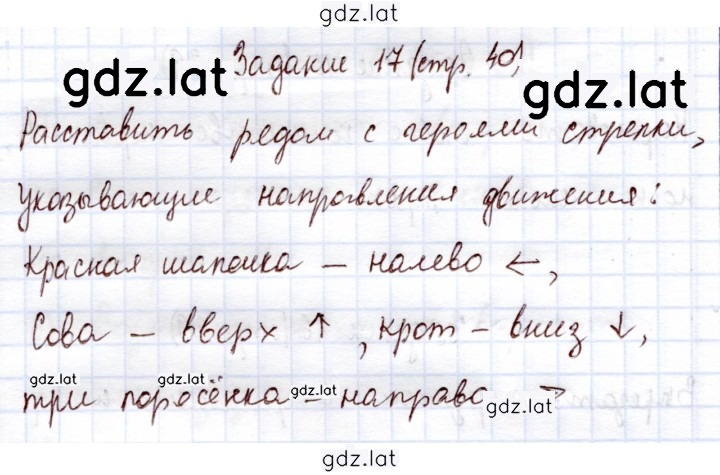 gdz.lat
Задание 17 (стр. 40)
gdz.lat gdz.lat
Расставить редом с героями стрелки,
указывающие направления движения:
Красная шапочка – налево ←,
Сова – вверх ↑, крот – вниз ↓,
gdz.lat gdz.lat gdz.lat gdz.lat
три поросёнка – направо →
gdz.lat